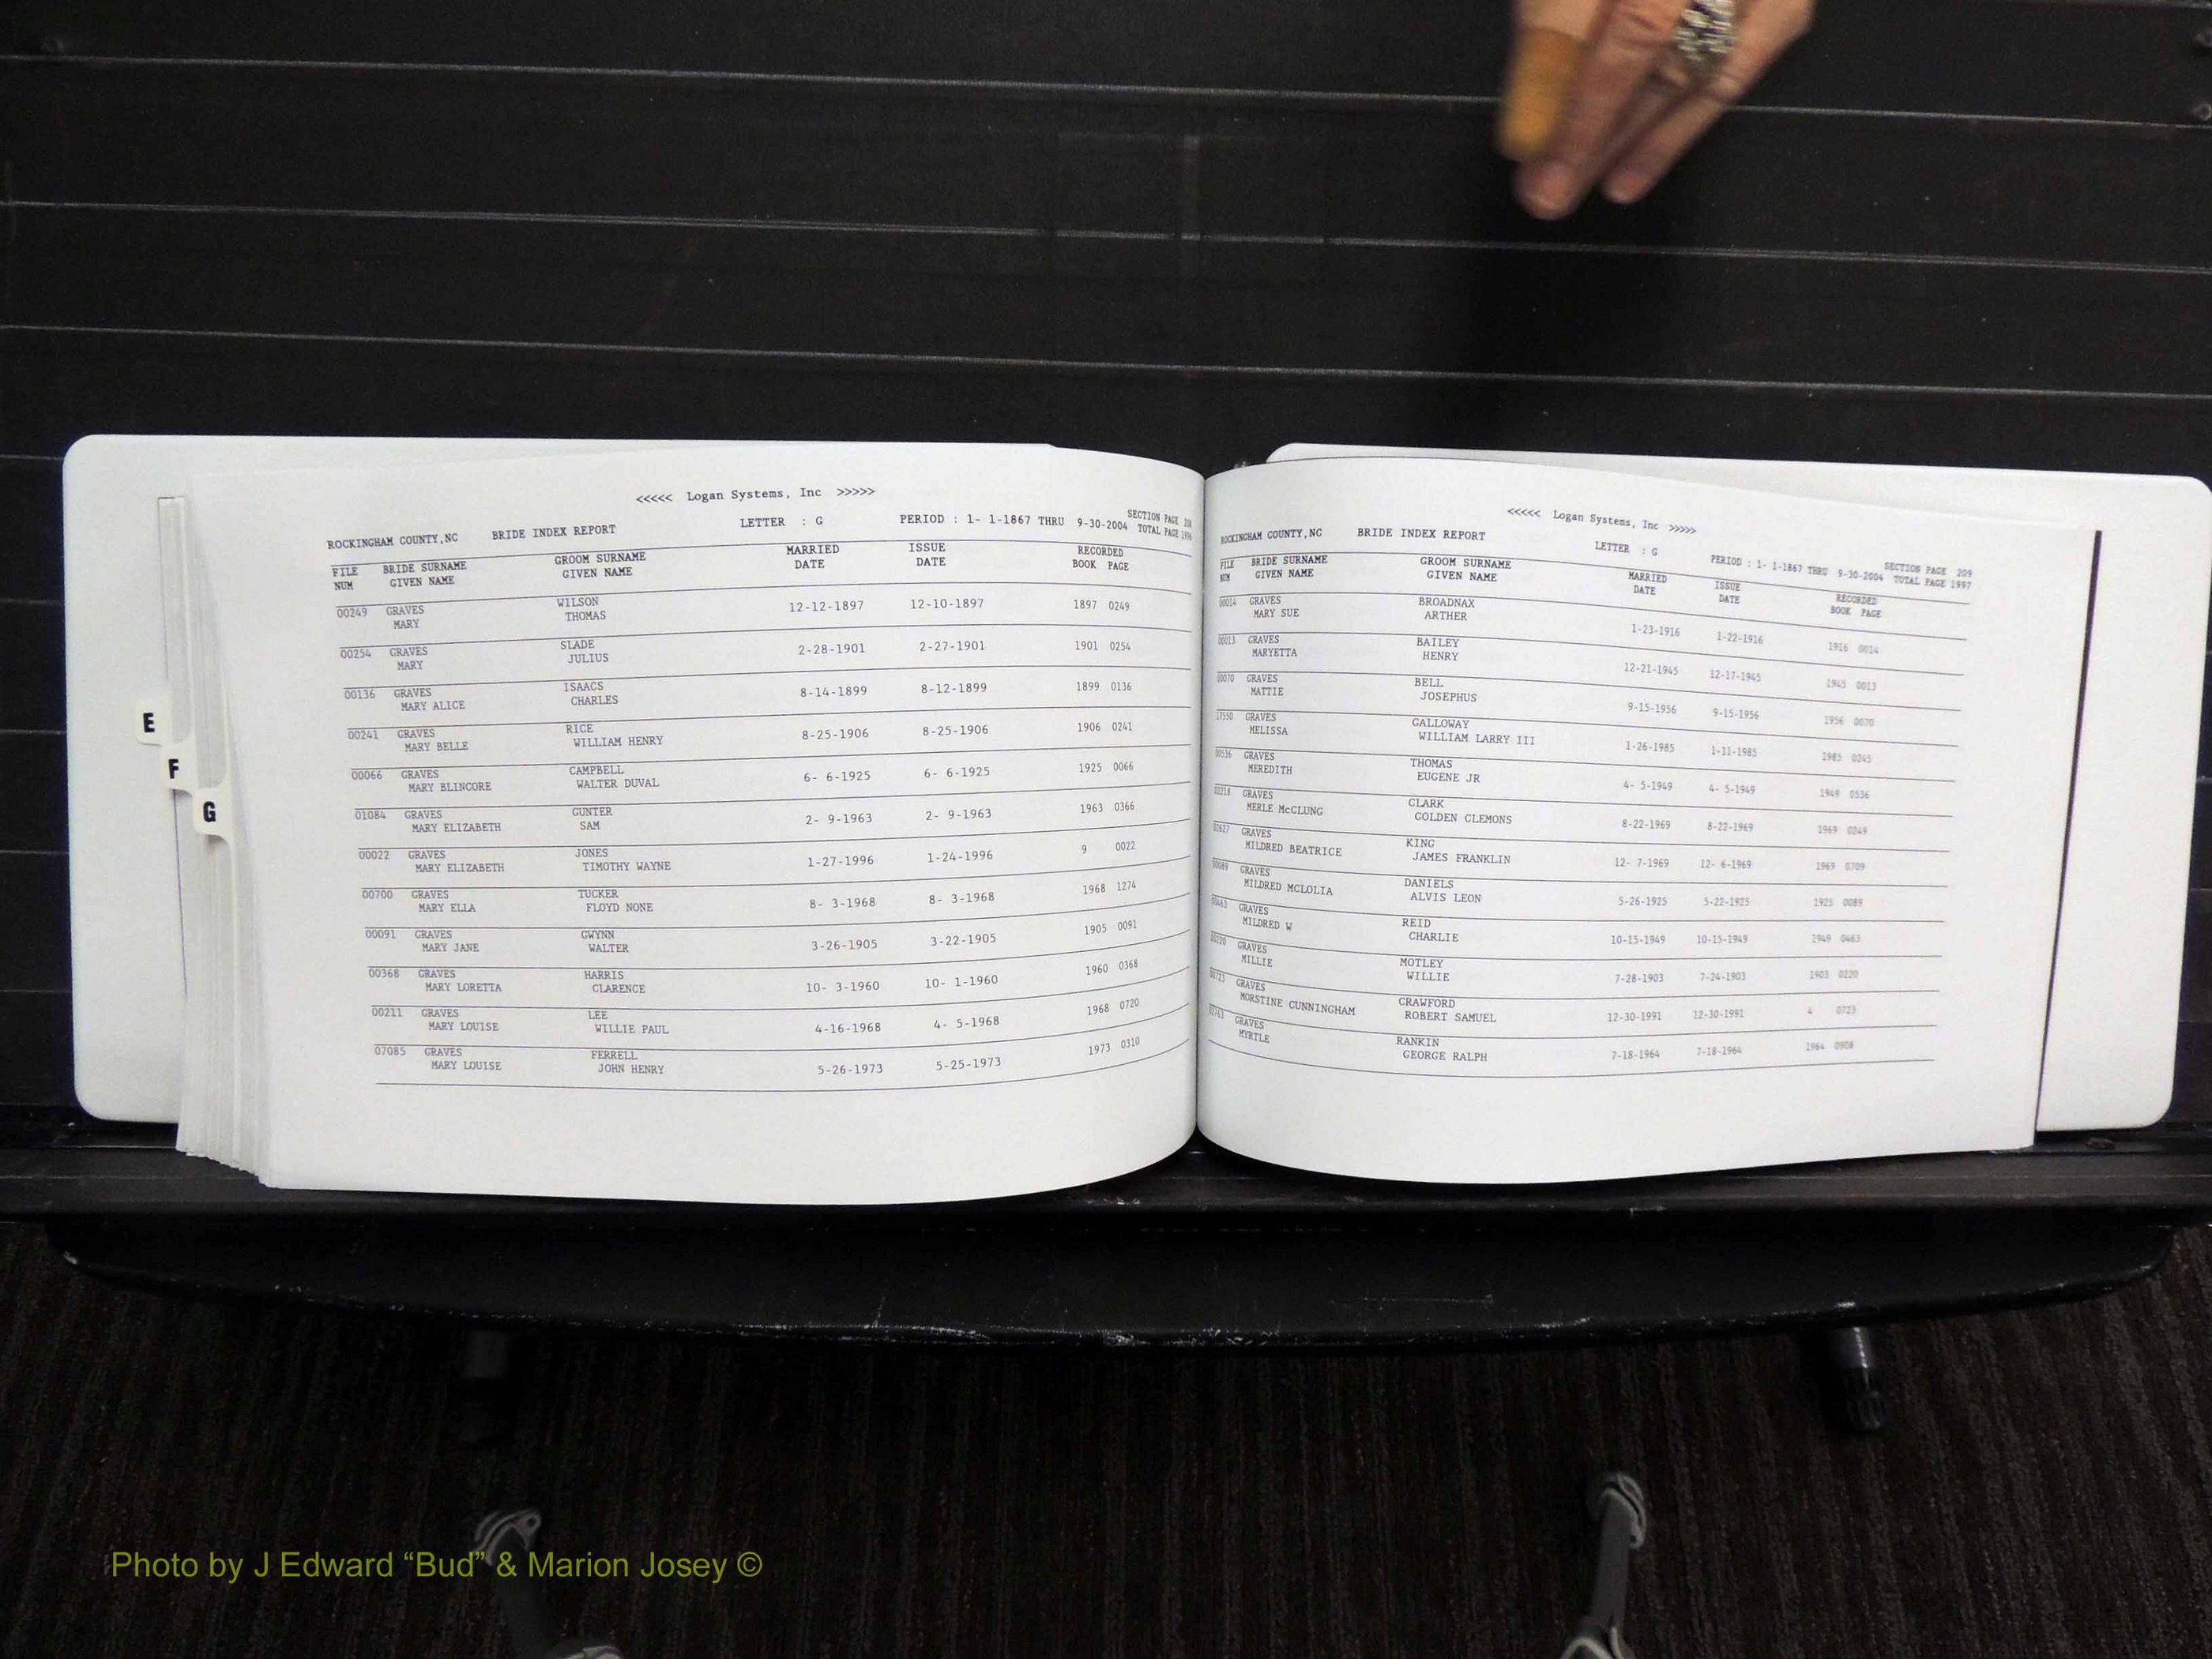 <<<<< Logan Systems, Inc >>>>>
ROCKINGHAM COUNTY,NC BRIDE INDEX REPORT LETTER : G PERIOD : 1- 1-1867 THRU 9-30-2004 SECTION PAGE 208
TOTAL PAGE 1996
FILE BRIDE SURNAME GROOM SURNAME MARRIED ISSUE RECORDED
NUM GIVEN NAME GIVEN NAME DATE DATE BOOK PAGE
00249 GRAVES WILSON 12-12-1897 12-10-1897 1897 0249
MARY THOMAS
00254 GRAVES SLADE 2-28-1901 2-27-1901 1901 0254
MARY JULIUS
00136 GRAVES ISAACS 8-14-1899 8-12-1899 1899 0136
MARY ALICE CHARLES
00241 GRAVES RICE 8-25-1906 8-25-1906 1906 0241
MARY BELLE WILLIAM HENRY
00066 GRAVES CAMPBELL 6- 6-1925 6- 6-1925 1925 0066
MARY BLINCORE WALTER DUVAL
01084 GRAVES GUNTER 2- 9-1963 2- 9-1963 1963 0366
MARY ELIZABETH SAM
00022 GRAVES JONES 1-27-1996 1-24-1996 9 0022
MARY ELIZABETH TIMOTHY WAYNE
00700 GRAVES TUCKER 8- 3-1968 8- 3-1968 1968 1274
MARY ELLA FLOYD NONE
00091 GRAVES GWYNN 3-26-1905 3-22-1905 1905 0091
MARY JANE WALTER
00368 GRAVES HARRIS 10- 3-1960 10- 1-1960 1960 0368
MARY LORETTA CLARENCE
00211 GRAVES LEE 4-16-1968 4- 5-1968 1968 0720
MARY LOUISE WILLIE PAUL
07085 GRAVES FERRELL 5-26-1973 5-25-1973 1973 0310
MARY LOUISE JOHN HENRY
E
F
G
<<<<< Logan Systems, Inc >>>>>
ROCKINGHAM COUNTY,NC BRIDE INDEX REPORT LETTER : G PERIOD : 1- 1-1867 THRU 9-30-2004 SECTION PAGE 209
TOTAL PAGE 1997
FILE BRIDE SURNAME GROOM SURNAME MARRIED ISSUE RECORDED
NUM GIVEN NAME GIVEN NAME DATE DATE BOOK PAGE
00014 GRAVES BROADNAX 1-23-1916 1-22-1916 1916 0014
MARY SUE ARTHER
00013 GRAVES BAILEY 12-21-1945 12-17-1945 1945 0013
MARYETTA HENRY
00070 GRAVES BELL 9-15-1956 9-15-1956 1956 0070
MATTIE JOSEPHUS
17550 GRAVES GALLOWAY 1-26-1985 1-11-1985 1985 0245
MELISSA WILLIAM LARRY III
00536 GRAVES THOMAS 4- 5-1949 4- 5-1949 1949 0536
MEREDITH EUGENE JR
02218 GRAVES CLARK 8-22-1969 8-22-1969 1969 0249
MERLE McCLUNG GOLDEN CLEMONS
02627 GRAVES KING 12- 7-1969 12- 6-1969 1969 0709
MILDRED BEATRICE JAMES FRANKLIN
00089 GRAVES DANIELS 5-26-1925 5-22-1925 1925 0089
MILDRED MCLOLIA ALVIS LEON
00463 GRAVES REID 10-15-1949 10-15-1949 1949 0463
MILDRED W CHARLIE
00220 GRAVES MOTLEY 7-28-1903 7-24-1903 1903 0220
MILLIE WILLIE
00723 GRAVES CRAWFORD 12-30-1991 12-30-1991 4 0723
MORSTINE CUNNINGHAM ROBERT SAMUEL
GRAVES RANKIN 7-18-1964 7-18-1964 1964 0908
MYRTLE GEORGE RALPH
Photo by J Edward “Bud” & Marion Josey ©